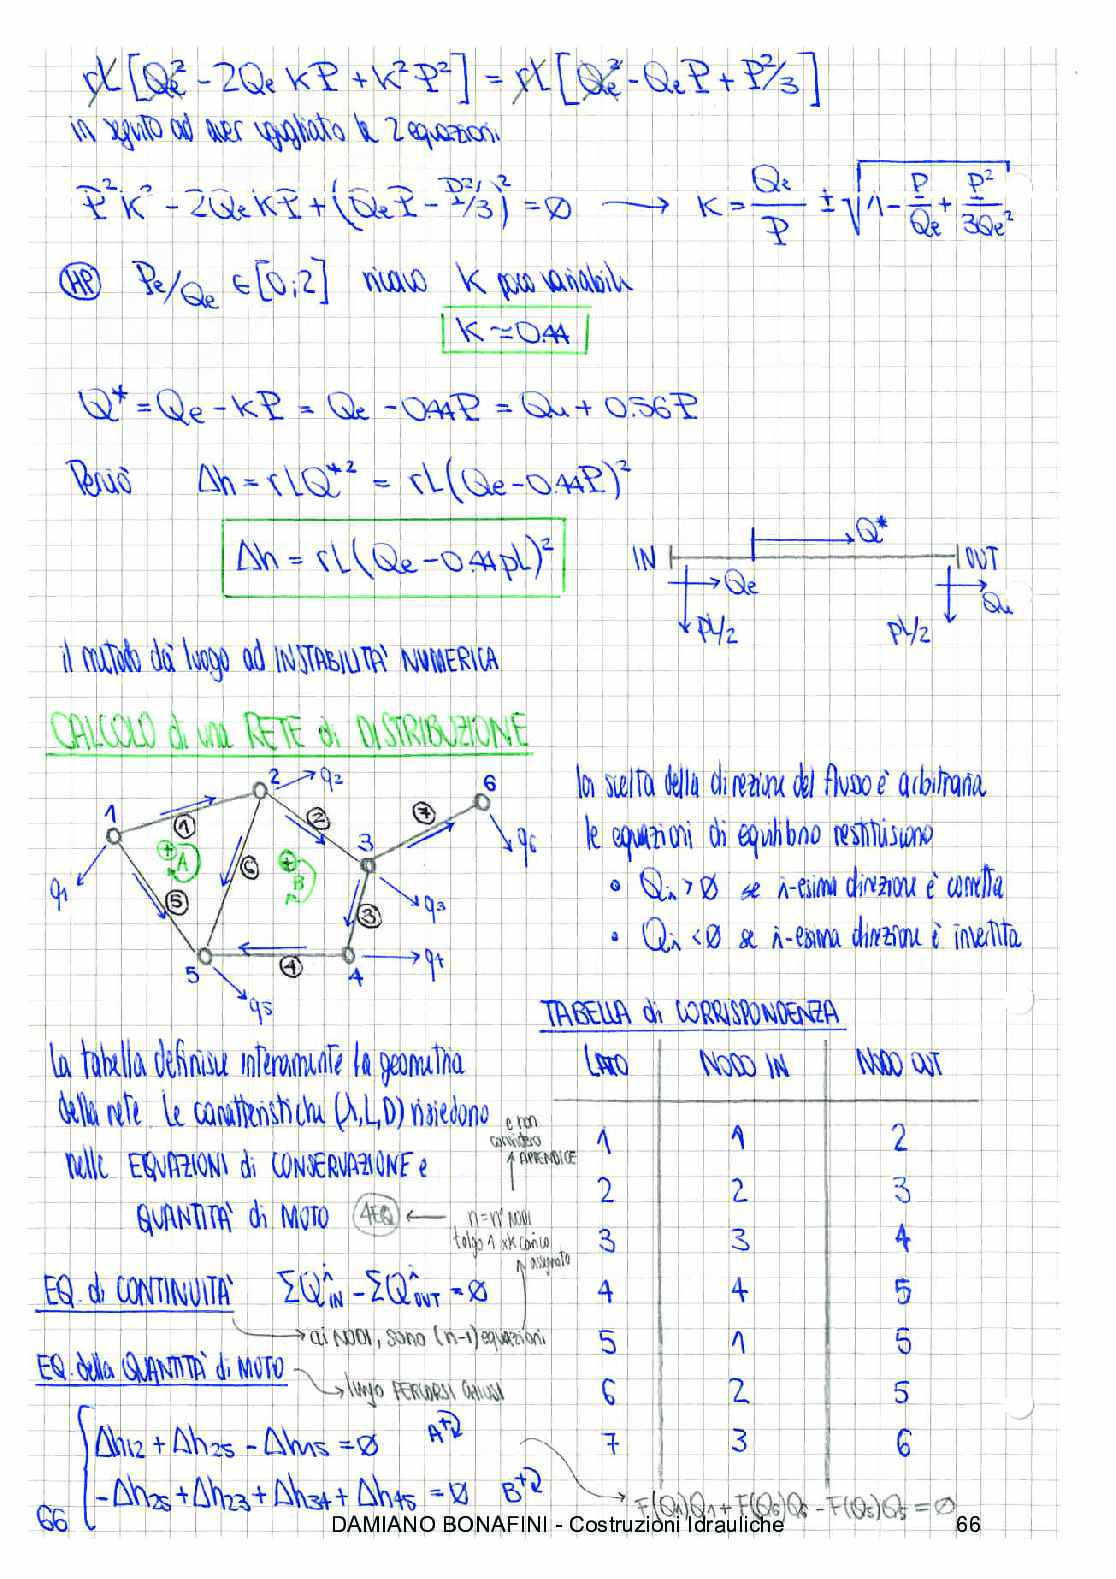 rL [Qe² - 2Qe KP + K²P²] = rL [Qe² - QeP + P²/3]
in seguito ad aver uguagliato le 2 equazioni
P²K² - 2QeKP + (QeP - P²/3)² = Ø → K = Qe/P ± √(1 - P/Qe + P²/3Qe²)
HP Pe/Qe ∈ [0;2] ricavo K poco variabile
K ≃ 0.44
Q* = Qe - KP = Qe - 0.44P = Qu + 0.56P
Perciò Δh = rLQ*² = rL(Qe - 0.44P)²
Δh = rL(Qe - 0.44pL)²
IN Q* OUT
Qe Qu
pL/2 pL/2
il metodo dà luogo ad INSTABILITA' NUMERICA
CALCOLO di una RETE di DISTRIBUZIONE
1 2 3 4 5 6
q1 q2 q3 q4 q5 q6
1 2 3 4 5 6 7
+ A + B
la scelta della direzione del flusso è arbitraria
le equazioni di equilibrio restituiscono
• Qi > Ø se i-esima direzione è corretta
• Qi < Ø se i-esima direzione è invertita
TABELLA di CORRISPONDENZA
LATO NODO IN NODO OUT
1 1 2
2 2 3
3 3 4
4 4 5
5 1 5
6 2 5
7 3 6
La tabella definisce interamente la geometria
della rete. Le caratteristiche (λ,L,D) risiedono
nelle EQUAZIONI di CONSERVAZIONE e
QUANTITA' di MOTO 4EQ ← n = n° NODI
tolgo 1 xk carico
assegnato
e non
considero
APPENDICE
EQ. di CONTINUITA' ΣQiIN - ΣQiOUT = Ø
→ ai NODI, sono (n-1) equazioni
EQ. della QUANTITA' di MOTO
→ lungo PERCORSI CHIUSI
Δh12 + Δh25 - Δh15 = Ø A+
-Δh25 + Δh23 + Δh34 + Δh45 = Ø B+
→ F(Q1)Q1 + F(Q6)Q6 - F(Q5)Q5 = Ø
66
DAMIANO BONAFINI - Costruzioni Idrauliche 66